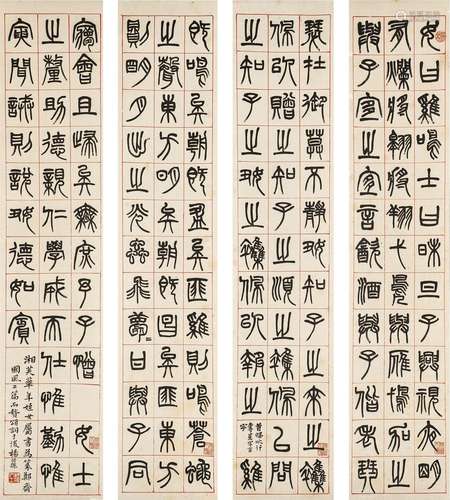 女曰雞鳴士曰昧旦子興視夜明星
有爛將翱將翔弋鳧與雁弋言加之
與子宜之宜言飲酒與子偕老琴
瑟在御莫不靜好知子之來之雜
佩以贈之知子之順之雜佩以問
之知子之好之雜佩以報之
既鳴矣朝既盈矣匪雞則鳴蒼蠅
之聲東方明矣朝既昌矣匪東方
則明月出之光蟲飛薨=甘與子同
夢會且歸矣無庶予子憎 女士
之釐助德親仁學成而仕惟勤惟
寅閒誠則說好德如賓
湘芙華年姪女屬書為篆鄭齊
國風二篇
楊沂孫